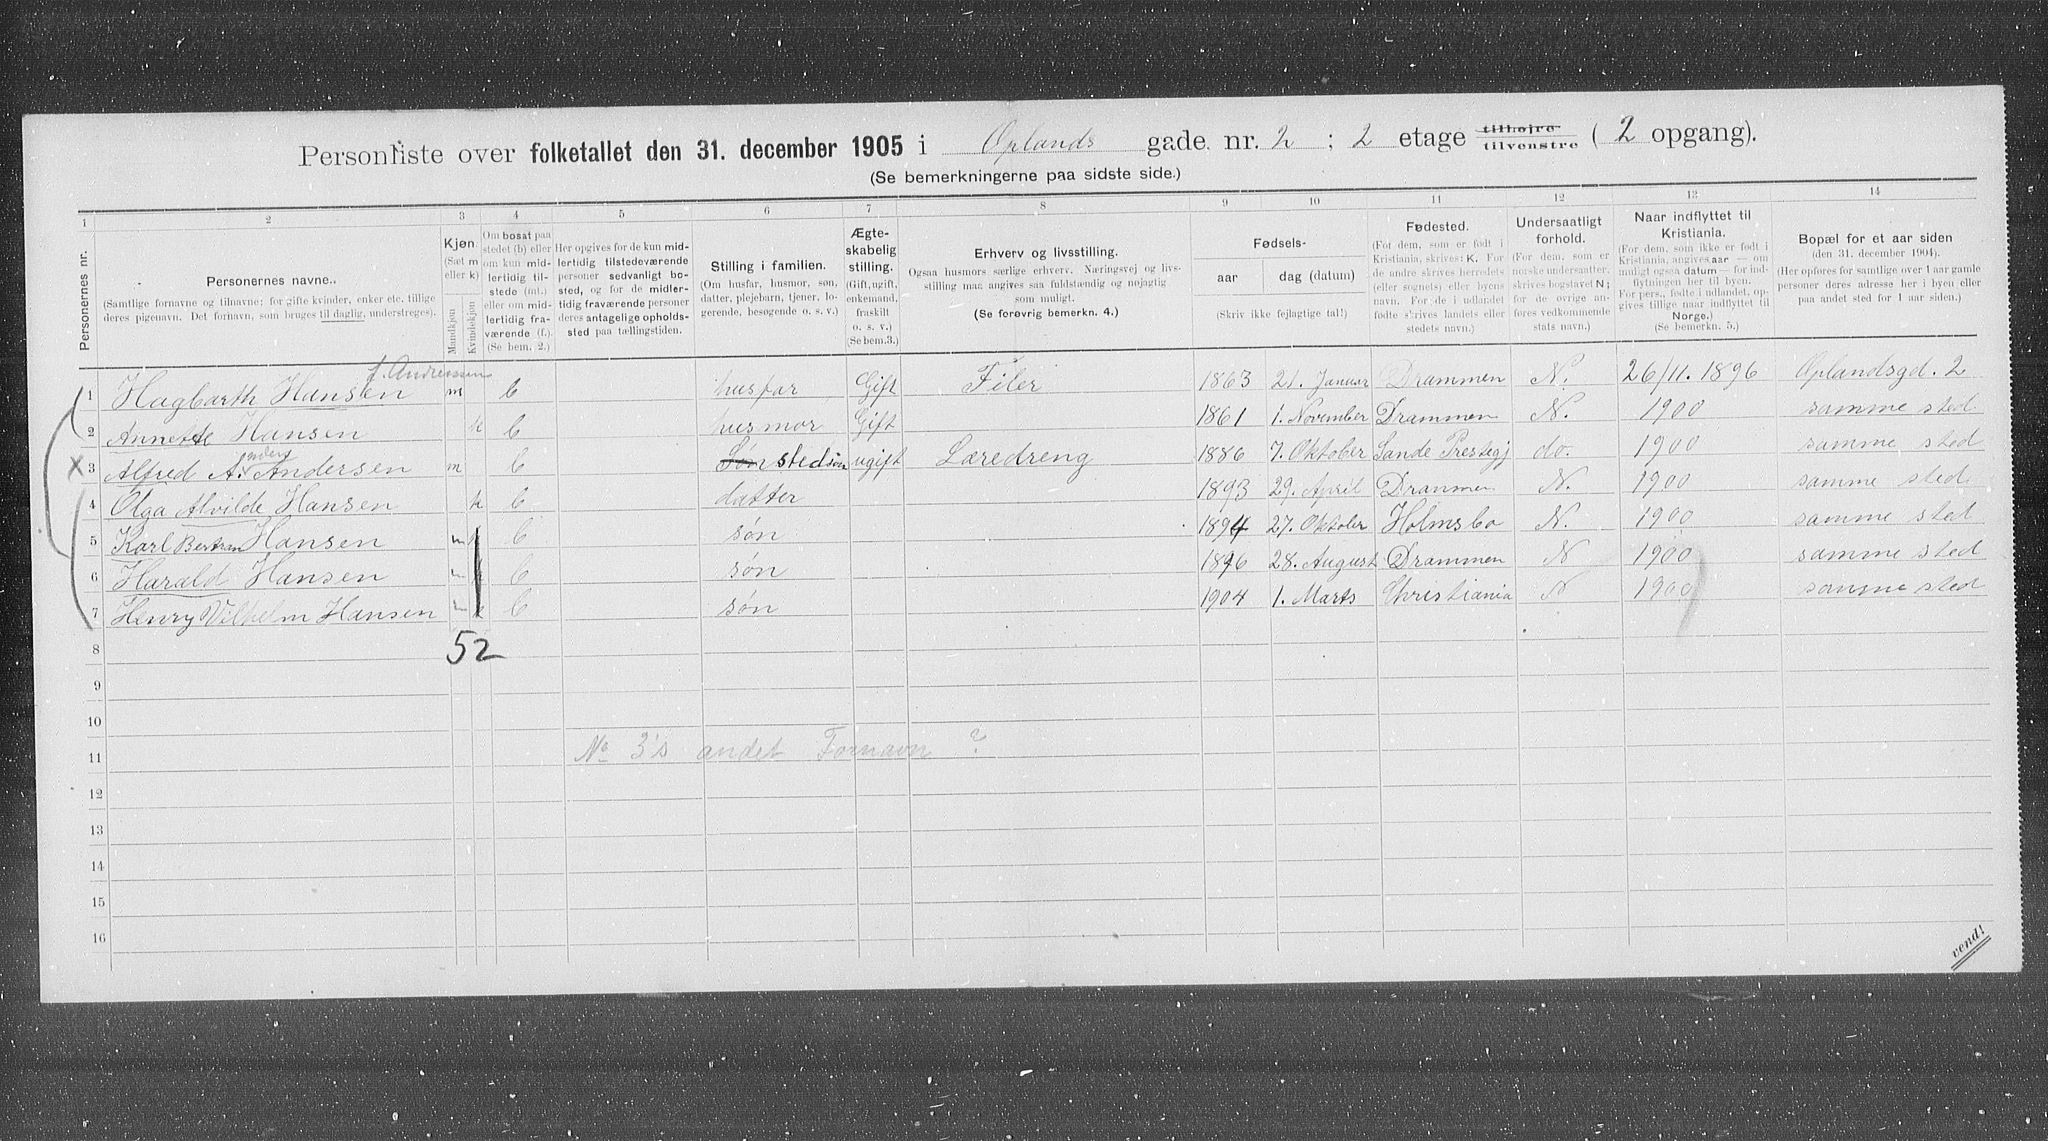 Personliste over folketallet den 31. december 1905 i Oplands gade nr. 2 ; 2 etage tilhøjre tilvenstre ( 2 opgang).
(Se bemerkningerne paa sidste side.)
1 2 3 4 5 6 7 8 9 10 11 12 13 14
Personernes nr.
Personernes navne..
(Samtlige fornavne og tilnavne; for gifte kvinder, enker etc. tillige deres pigenavn. Det fornavn, som bruges til daglig, understreges).
Kjøn.
(Sæt m eller k)
Mandkjøn
Kvindekjøn
Om bosat paa stedet (b) eller om kun midlertidig tilstede (mt.) eller om midlertidig fraværende (f.). (Se bem. 2.)
Her opgives for de kun midlertidig tilstedeværende personer sedvanligt bosted, og for de midlertidig fraværende personer deres antagelige opholdssted paa tællingstiden.
Stilling i familien.
(Om husfar, husmor, søn, datter, plejebarn, tjener, logerende, besøgende o. s. v.)
Ægteskabelig stilling.
(Gift, ugift, enkemand, fraskilt o. s. v.)
(Se bem. 3.)
Erhverv og livsstilling.
Ogsaa husmors særlige erhverv. Næringsvej og livsstilling maa angives saa fuldstændig og nøjagtig som muligt.
(Se forøvrig bemerkn. 4.)
Fødsels-
aar
dag (datum)
(Skriv ikke fejlagtige tal!)
Fødested.
(For dem, som er født i Kristiania, skrives: K. For de andre skrives herredets (eller sognets) eller byens navn. For de i udlandet fødte skrives landets eller stedets navn.)
Undersaatligt forhold.
(For dem, som er norske undersaatter, skrives bogstavet N; for de øvrige anføres vedkommende stats navn.)
Naar indflyttet til Kristiania.
(For dem, som ikke er født i Kristiania, angives aar — om muligt ogsaa datum — for indflytningen her til byen. For pers., fødte i udlandet, opgives tillige naar indflyttet til Norge.)
(Se bemerkn. 5.)
Bopæl for et aar siden
(den 31. december 1904).
(Her opføres for samtlige over 1 aar gamle personer deres adresse her i byen eller paa andet sted for 1 aar siden.)
f. Andreasen
1 Hagbarth Hansen m b husfar Gift Filer 1863 21. Januar Drammen N. 26/11. 1896 Oplandsgd. 2
2 Annette Hansen k b husmor Gift 1861 1. November Drammen N. 1900 samme sted
X 3 Alfred A. Andersen m b Søn stedsøn ugift Læredreng 1886 7. Oktober Sande Prestegj do. 1900 samme sted
4 Olga Alvilde Hansen k b datter 1893 29. April Drammen N. 1900 samme sted
5 Karl Bertran Hansen m b søn 1894 27. Oktober Holmsbo N. 1900 samme sted
6 Harald Hansen m b søn 1896 28. August Drammen N 1900 samme sted
7 Henry Vilhelm Hansen m b søn 1904 1. Marts Christiania N 1900 samme sted
8 52
9
10
11 No 3's andet Fornavn ?
12
13
14
15
16
vend!